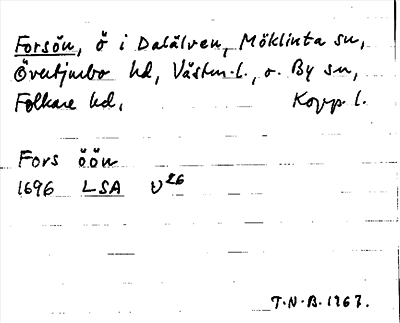 Forsön, ö i Dalälven, Möklinta sn,
Övertjurbo hd, Västm. l., o. By sn,
Folkare hd, Kopp l.
Fors öön
1696 LSA U26
T.N.B. 1967.